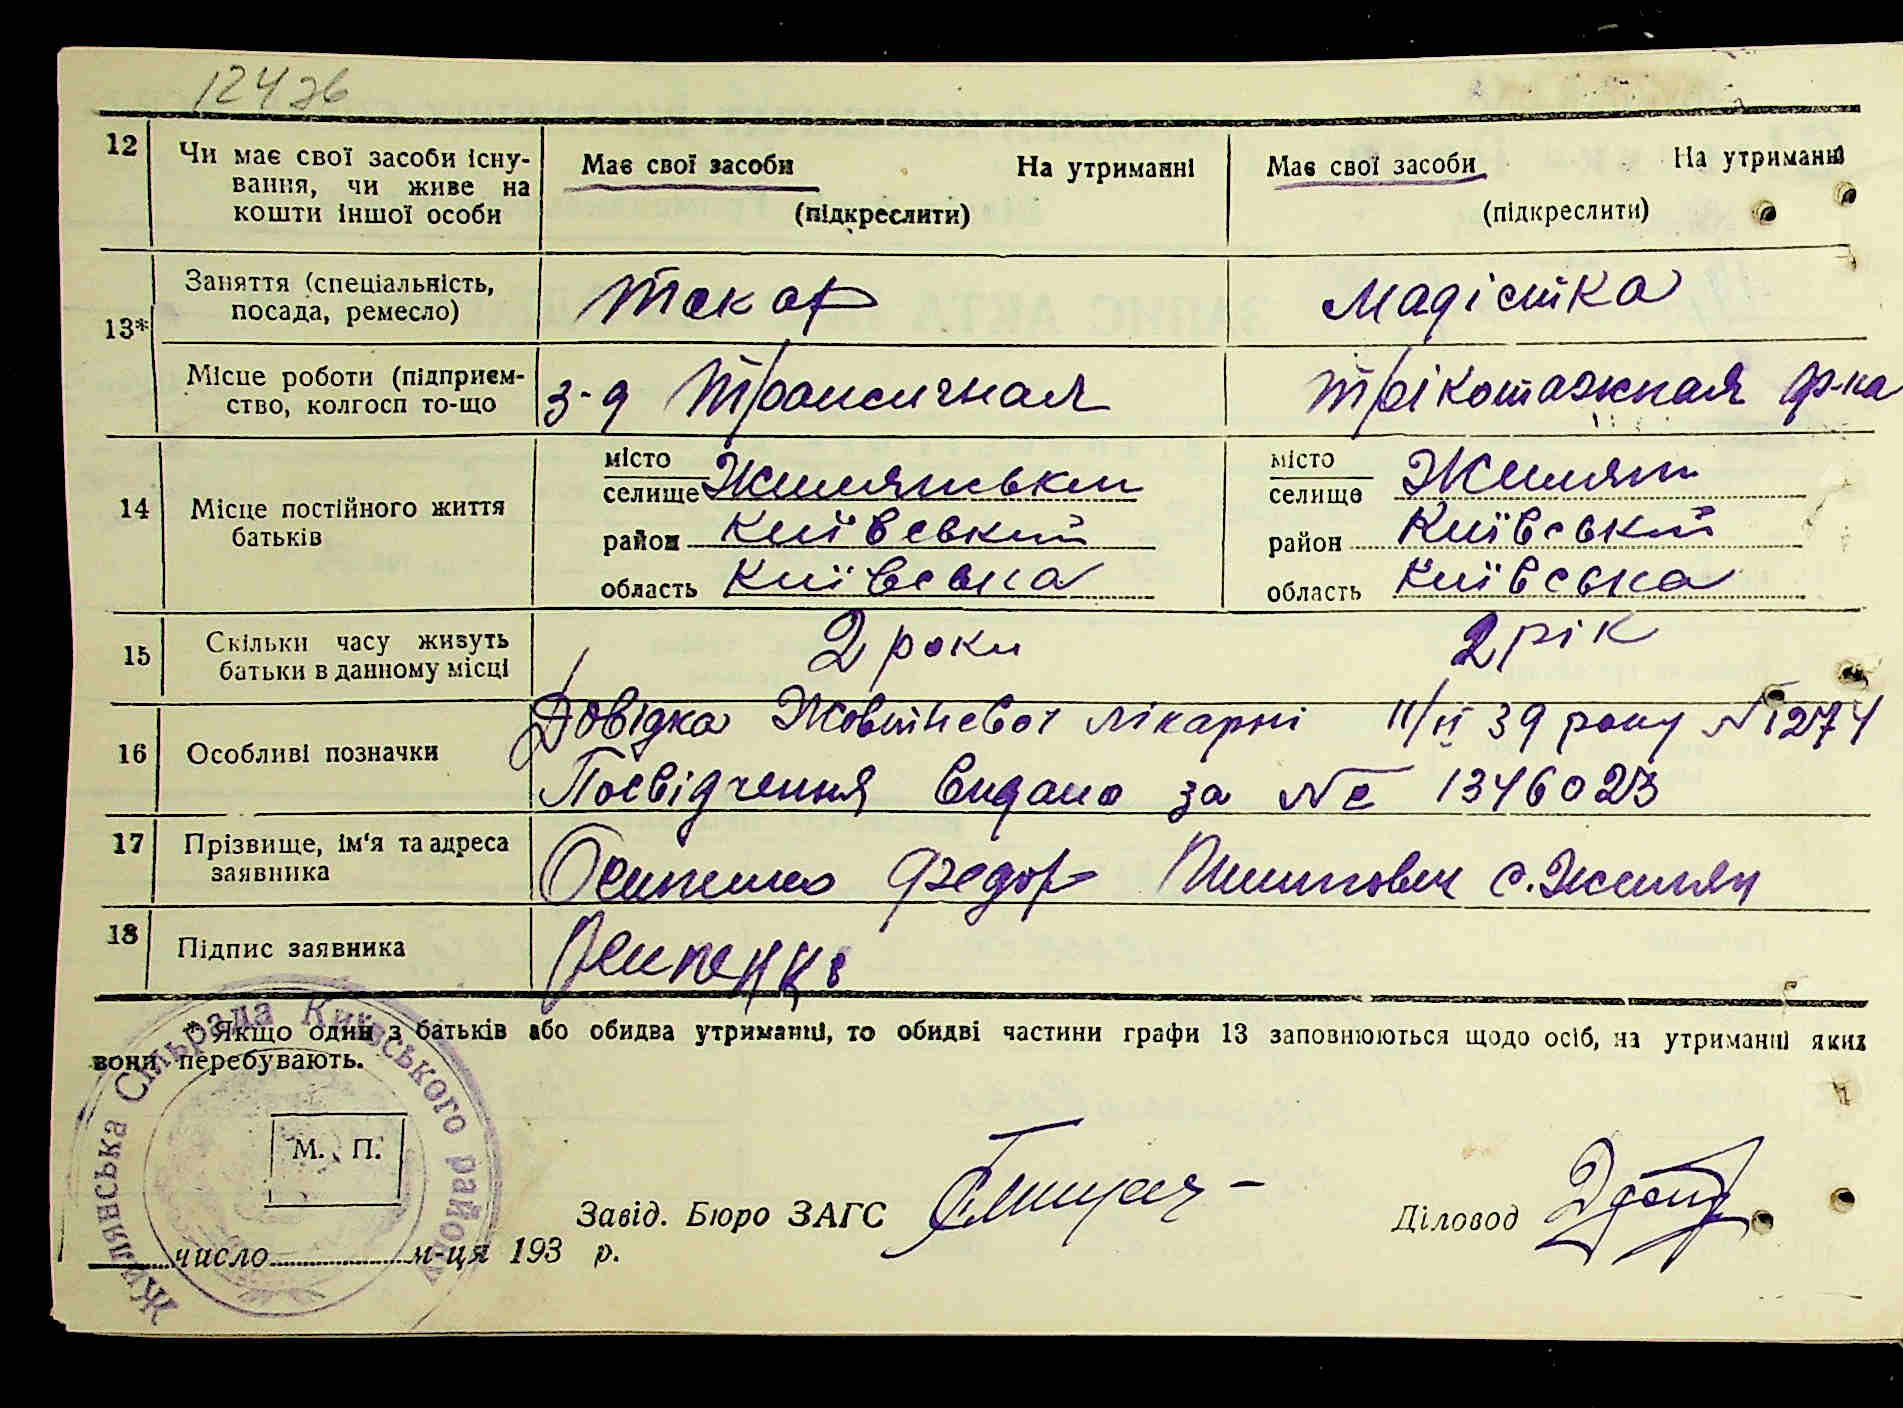 124зв
12 Чи має свої засоби існу-
вання, чи живе на
кошти іншої особи
Має свої засоби На утриманні
(підкреслити)
Має свої засоби На утриманні
(підкреслити)
13* Заняття (спеціальність,
посада, ремесло)
Токар
Модістка
Місце роботи (підприєм-
ство, колгосп то-що
з-д
Трікотажная ф-ка
14 Місце постійного життя
батьків
місто
селище Жиляньки
район Київський
область Київська
місто
селище Жиляни
район Київський
область Київська
15 Скільки часу живуть
батьки в данному місці
2 роки
2 рік
16 Особливі позначки
Довідка Жовтневої лікарні 11/II 39 року № 1274
Посвідчення видано за № 1346023
17 Прізвище, ім'я та адреса
заявника
Осипенко Федор с. Жиляни
18 Підпис заявника
Осипенко
* Якщо один з батьків або обидва утриманці, то обидві частини графи 13 заповнюються щодо осіб, на утриманні яких
вони перебувають.
Жилянська Сільрада Київського району
М. П.
Завід. Бюро ЗАГС
Діловод
число м-ця 193 р.